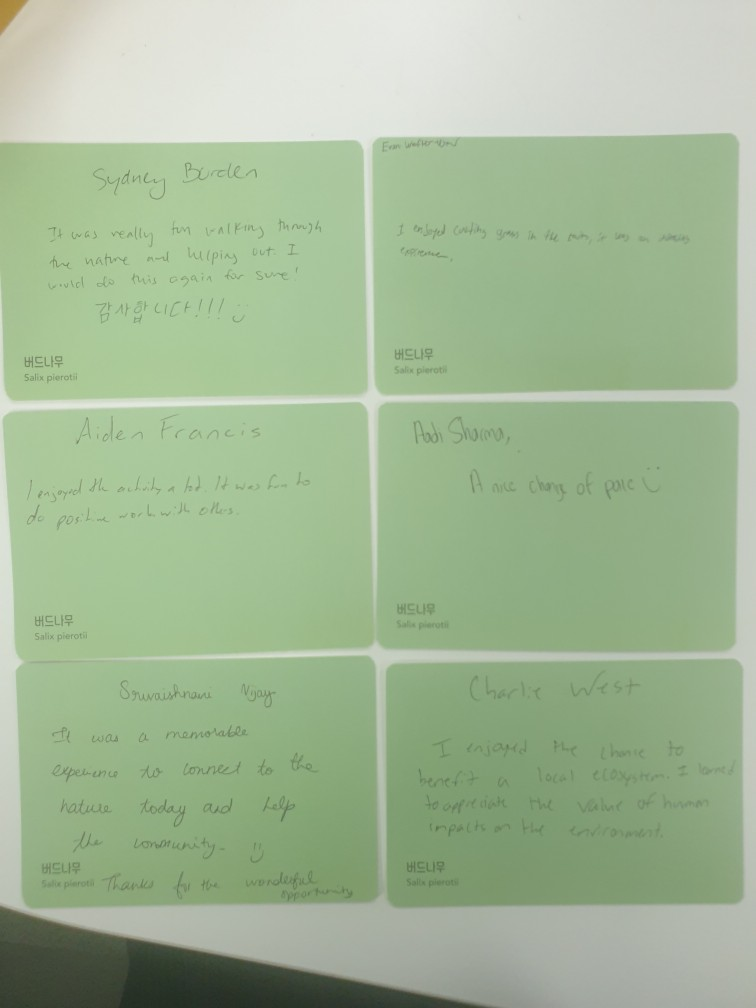 Sydney Burden
It was really fun walking through
the nature and helping out. I
would do this again for sure!
감사합니다!!! :)
버드나무
Salix pierotii
Evan
I enjoyed in the it was an amazing
experience.
버드나무
Salix pierotii
Aiden Francis
I enjoyed the activity a lot. It was fun to
do positive work with others.
버드나무
Salix pierotii
Aadi Sharma,
A nice change of pace :)
버드나무
Salix pierotii
Srivaishnavi Vijay
It was a memorable
experience to connect to the
nature today and help
the community. :)
버드나무
Salix pierotii Thanks for the wonderful
opportunity
Charlie West
I enjoyed the chance to
benefit a local ecosystem. I learned
to appreciate the value of human
impacts on the environment.
버드나무
Salix pierotii